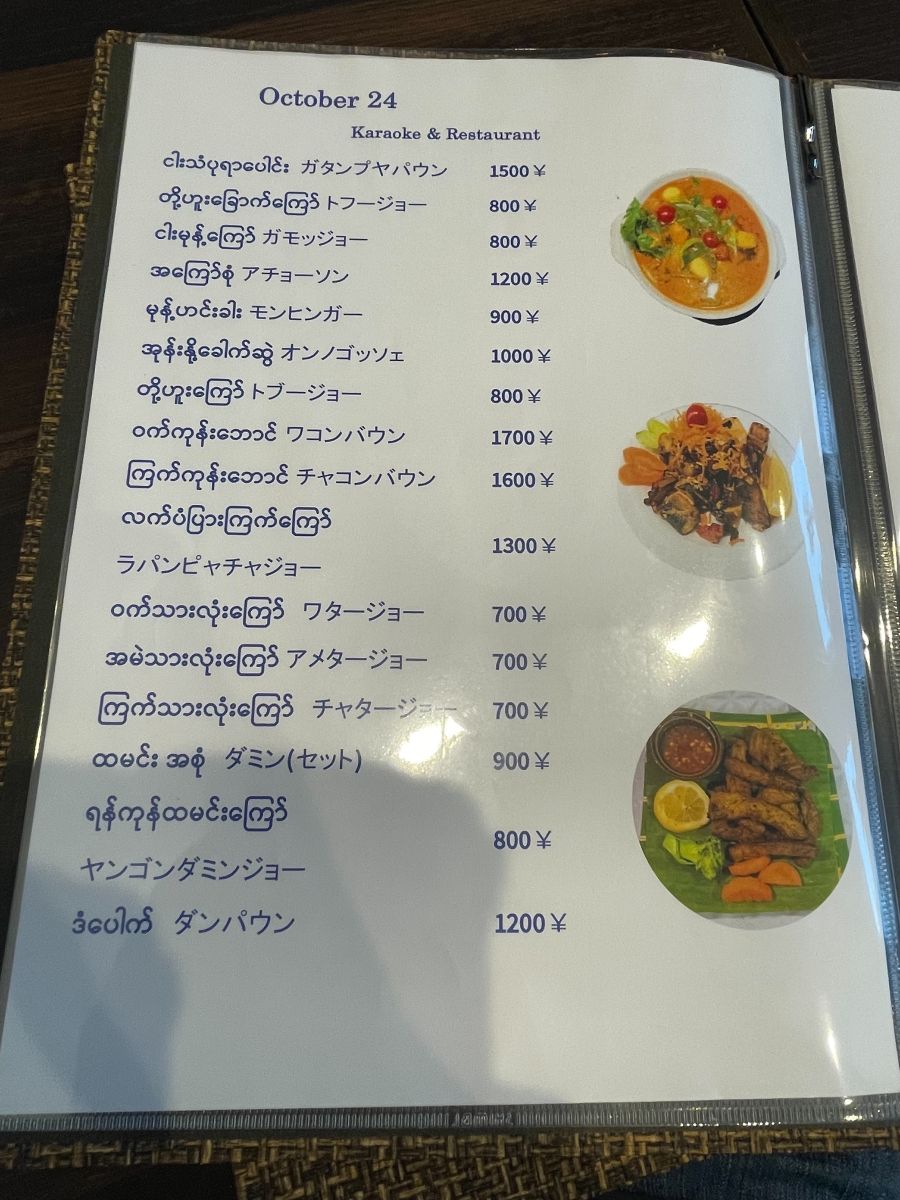 October 24
Karaoke & Restaurant
ငါးသံပုရာပေါင်း ガタンプヤパウン 1500 ¥
တို့ဟူးခြောက်ကြော် トフージョー 800 ¥
ငါးမုန့်ကြော် ガモッジョー 800 ¥
အကြော်စုံ アチョーソン 1200 ¥
မုန့်ဟင်းခါး モンヒンガー 900 ¥
အုန်းနို့ခေါက်ဆွဲ オンノゴッソェ 1000 ¥
တို့ဟူးကြော် トブージョー 800 ¥
ဝက်ကုန်းဘောင် ワコンバウン 1700 ¥
ကြက်ကုန်းဘောင် チャコンバウン 1600 ¥
လက်ပံပြားကြက်ကြော်
ラパンピャチャジョー 1300 ¥
ဝက်သားလုံးကြော် ワタージョー 700 ¥
အမဲသားလုံးကြော် アメタージョー 700 ¥
ကြက်သားလုံးကြော် チャタージョー 700 ¥
ထမင်း အစုံ ダミン(セット) 900 ¥
ရန်ကုန်ထမင်းကြော်
ヤンゴンダミンジョー 800 ¥
ဒံပေါက် ダンパウン 1200 ¥